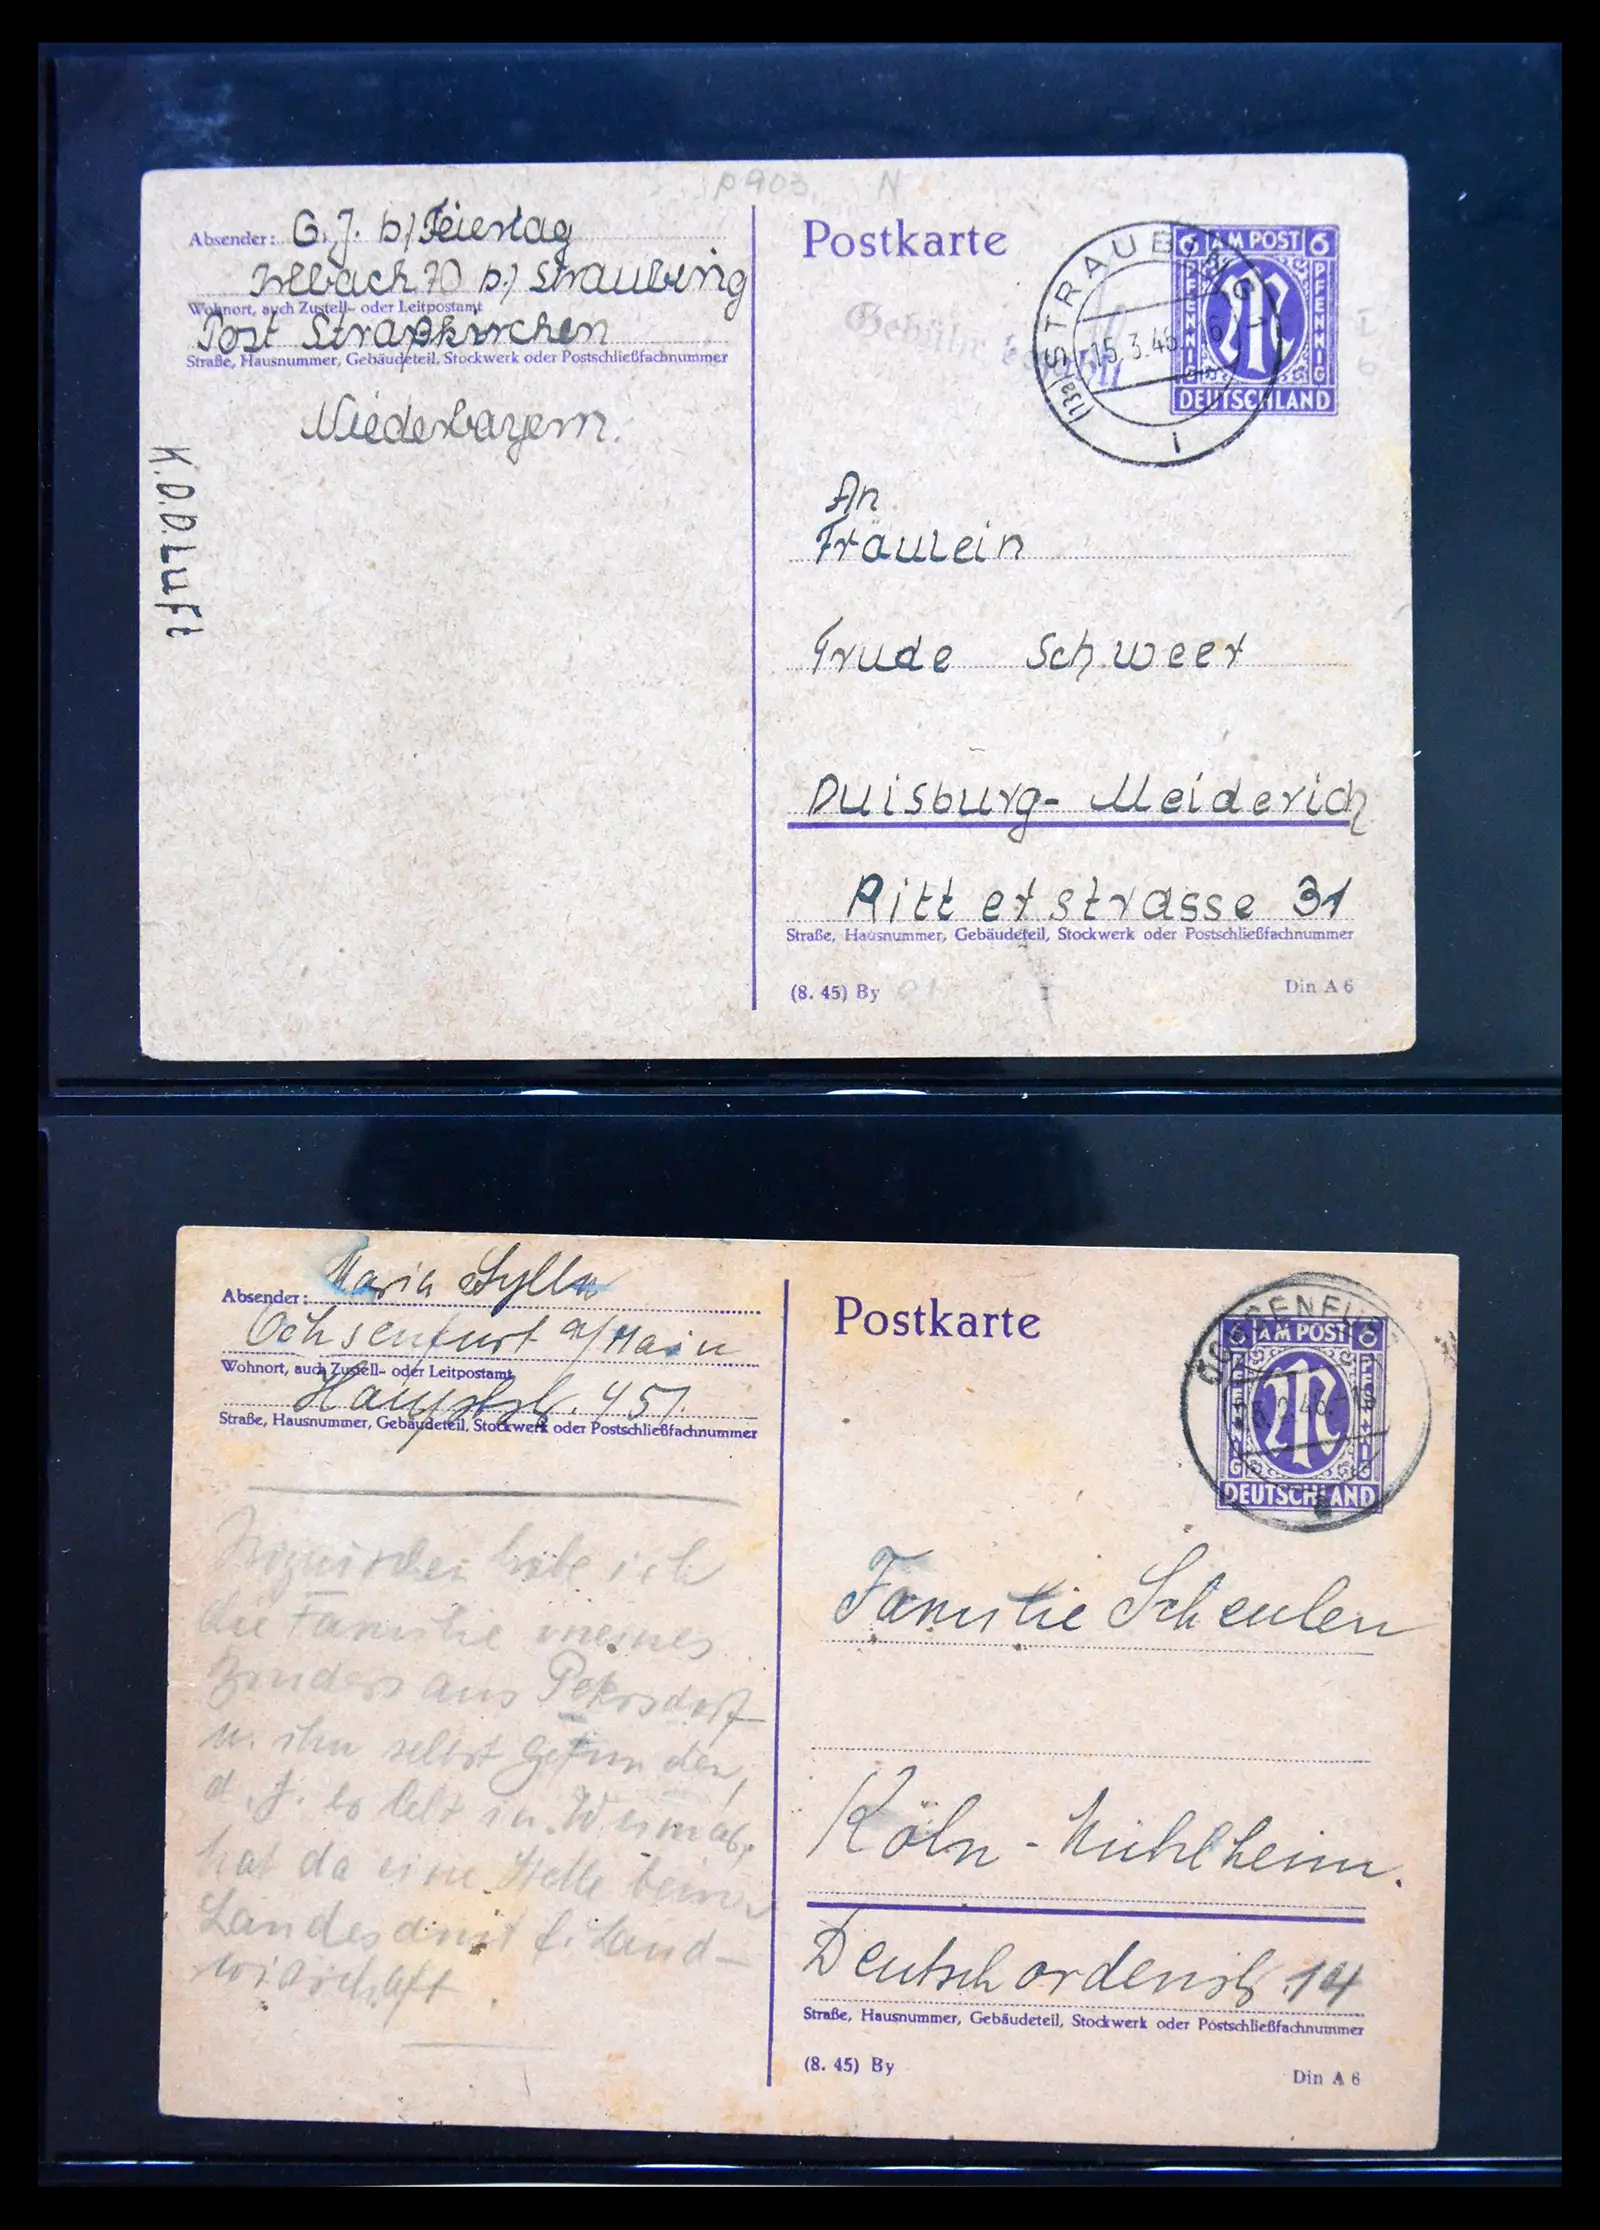 p903 N
Absender: G. J. b/ Feiertag
Irlbach 70 b/ Straubing
Wohnort, auch Zustell- oder Leitpostamt
Post Straßkirchen
Straße, Hausnummer, Gebäudeteil, Stockwerk oder Postschließfachnummer
Niederbayern.
K.D.D.Luft
Postkarte
6 AM POST 6
PFENNIG PFENNIG
DEUTSCHLAND
(13a) STRAUBING 1
15.3.46
i
Gebühr bezahlt
An
Fräulein
Trude Schweer
Duisburg-Meiderich
Ritterstrasse 31
Straße, Hausnummer, Gebäudeteil, Stockwerk oder Postschließfachnummer
(8. 45) By
Din A 6
Absender: Maria Sylla
Ochsenfurt a/Main
Wohnort, auch Zustell- oder Leitpostamt
Hauptstr. 451.
Straße, Hausnummer, Gebäudeteil, Stockwerk oder Postschließfachnummer
Inzwischen habe ich
die Familie meines
Bruders aus Petersdorf
u. ihn selbst gefunden,
d. h. er lebt in Weimar,
hat da eine Stelle beim
Landesamt f. Land-
wirtschaft.
Postkarte
6 AM POST 6
PFENNIG PFENNIG
DEUTSCHLAND
OCHSENFURT
2.46
Familie Scheulen
Köln-Mühlheim.
Deutschordenstr. 14
Straße, Hausnummer, Gebäudeteil, Stockwerk oder Postschließfachnummer
(8. 45) By
Din A 6